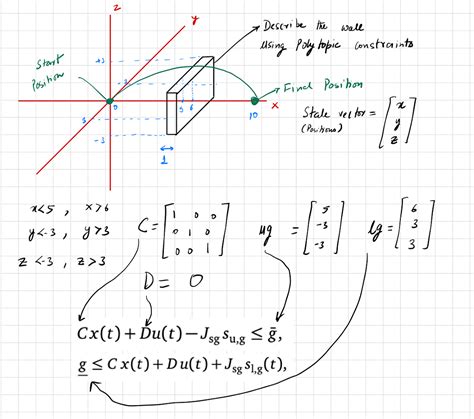 z
y
Describe the wall
using Polytopic constraints
Start
Position
+3
-3
3
-3
0
5 6
10
x
Final Position
1
State vector = [x
(Positions)
y
z]
x<5 , x>6
y<-3 , y>3
z<-3 , z>3
C = [1 0 0
0 1 0
0 0 1]
ug = [5
-3
-3]
lg = [6
3
3]
D = 0
Cx(t) + Du(t) − J_sg s_u,g ≤ ḡ,
g̲ ≤ Cx(t) + Du(t) + J_sg s_l,g(t),